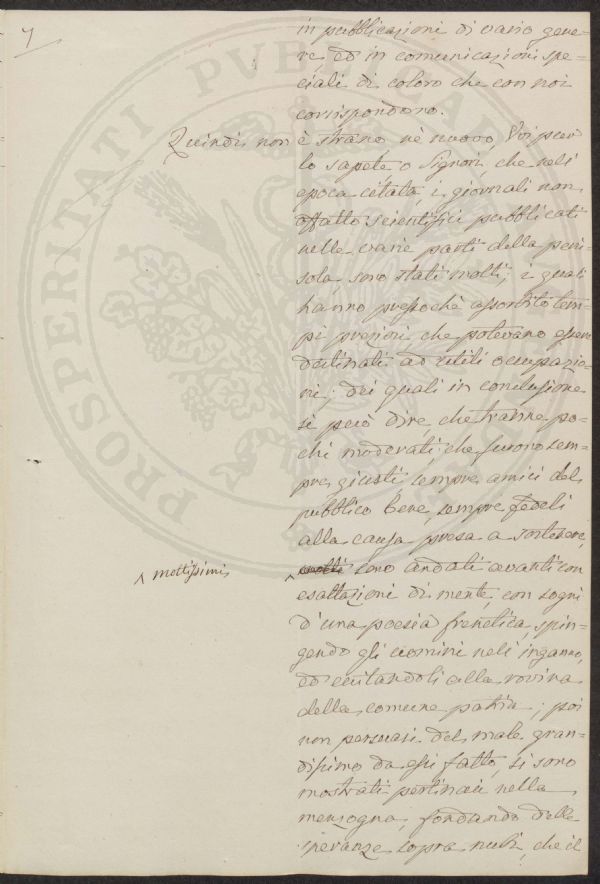 7
in pubblicazioni di vario gene-
re, ed in comunicazioni spe-
ciali di coloro che con noi
corrispondono.
Quindi non è strano nè nuovo, Voi pur
lo sapete o Signori, che nell'
epoca citata, i giornali non
affatto scientifici pubblicati
nelle varie parti della peni-
sola sono stati molti; i quali
hanno pressochè assorbito tem-
pi preziosi che potevano essere
destinati ad utili occupazio-
ni; dei quali in conclusione
si può dire, che tranne po-
chi moderati, che furono sem-
pre giusti, sempre amici del
pubblico bene, sempre fedeli
alla causa presa a sostenere,
moltissimi
molti sono andati avanti con
esaltazioni di mente, con sogni
d'una poesia frenetica, spin-
gendo gli uomini nell'inganno,
ed eccitandoli alla rovina
della comune patria; poi
non persuasi del male gran-
dissimo da essi fatto, si sono
mostrati pertinaci nella
menzogna, fondando delle
speranze sopra nubi, che il
PROSPERITATI PVBLICAE